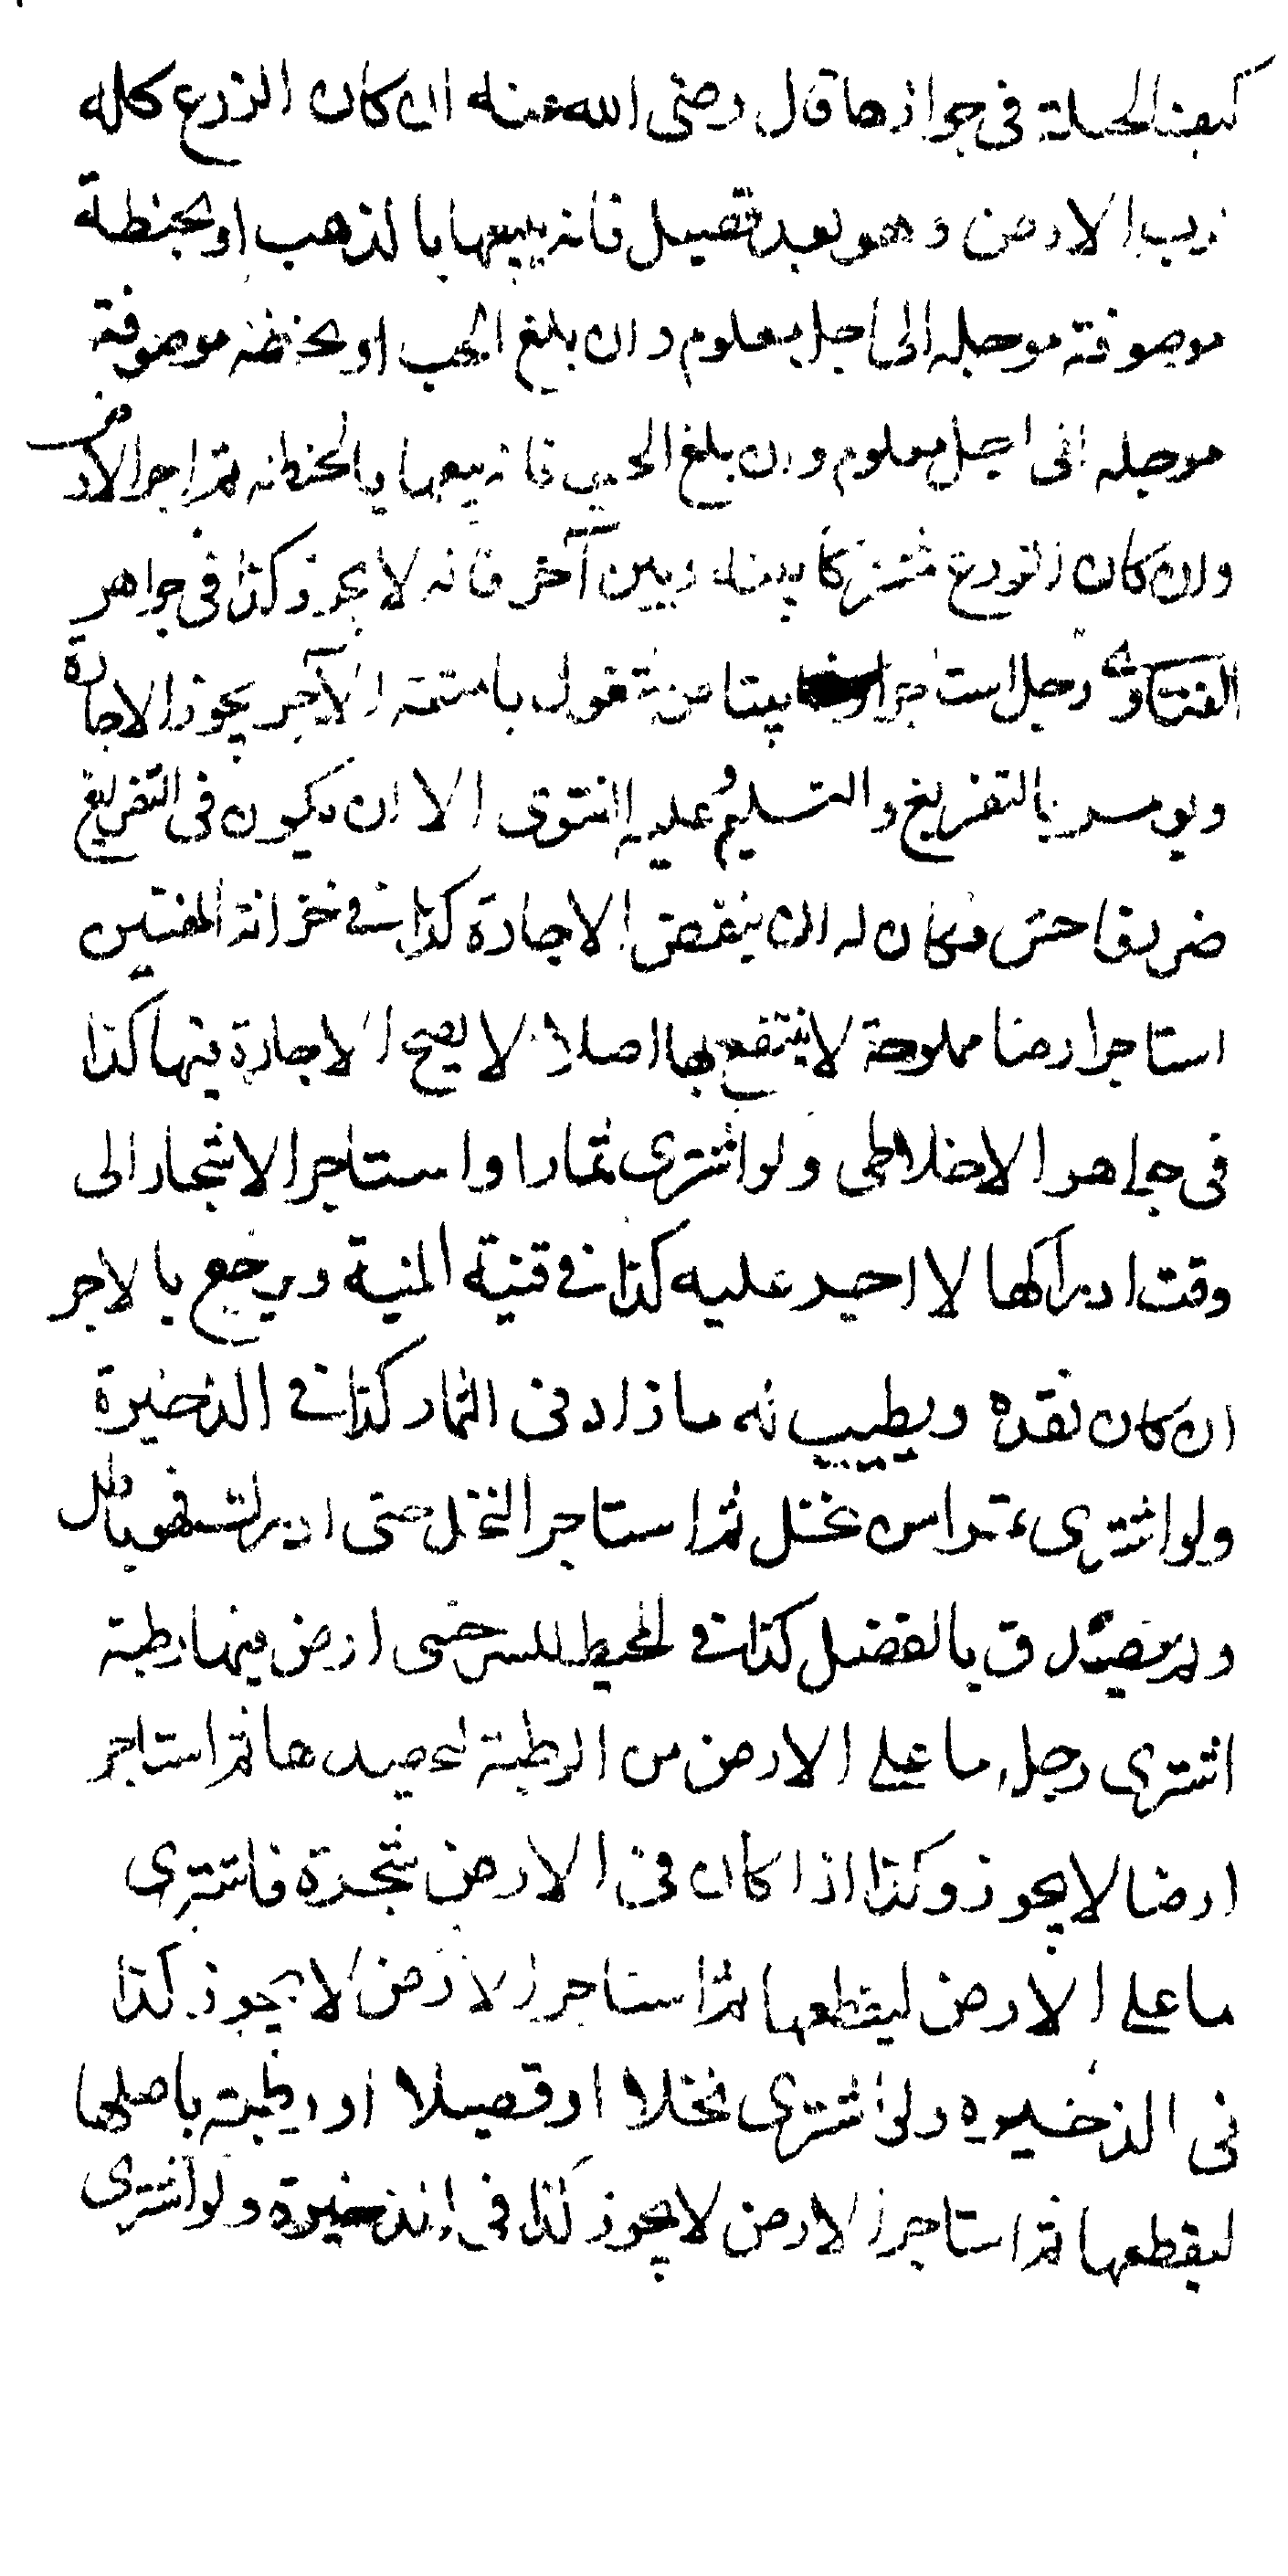 كيف الحيلة في جوازها قال رضى الله عنه ان كان الزرع كله
لرب الارض وهو بعد قصيل فانه يبيعها بالذهب او بحنطة
موصوفة موجله الى اجل معلوم وان بلغ الحب او بحنطه موصوفة
موجله الى اجل معلوم وان بلغ الحب فانه يبيعها بالحنطه ثم اجر الارض
وان كان الزرع مشتركا بينه وبين آخر فانه لا يجوز كذا في جواهر
الفتاوى رجل استاجر بيتا مشغول بامتعة الآجر يجوز الاجارة
ويومر بالتفريغ والتسليم عليه الفتوى الا ان يكون في التفريغ
ضرر فاحش فكان له ان ينقض الاجارة كذا في خزانة المفتين
استاجر ارضا مملوحة لا ينتفع بها اصلا لا يصح الاجارة فيها كذا
في جواهر الاخلاطى ولو اشترى ثمارا واستاجر الاشجار الى
وقت ادراكها لا اجر عليه كذا في قنية المنية ويرجع بالاجر
ان كان نقده ويطيب له ما زاد في الثمار كذا في الذخيرة
ولو اشترى راس نخل ثم استاجر النخل حتى ادركت فهو باطل
ولم يتصدق بالفضل كذا في المحيط للسرخسى ارض فيها رطبة
اشترى رجل ما على الارض من الرطبة ليحصدها ثم استاجر
ارضا لا يجوز وكذا اذا كان في الارض شجرة فاشترى
ما على الارض ليقطعها ثم استاجر الارض لا يجوز كذا
في الذخيره ولو اشترى نخلا او قصيلا او رطبة باصلها
ليقطعها ثم استاجر الارض لا يجوز كذا في الذخيرة ولو اشترى